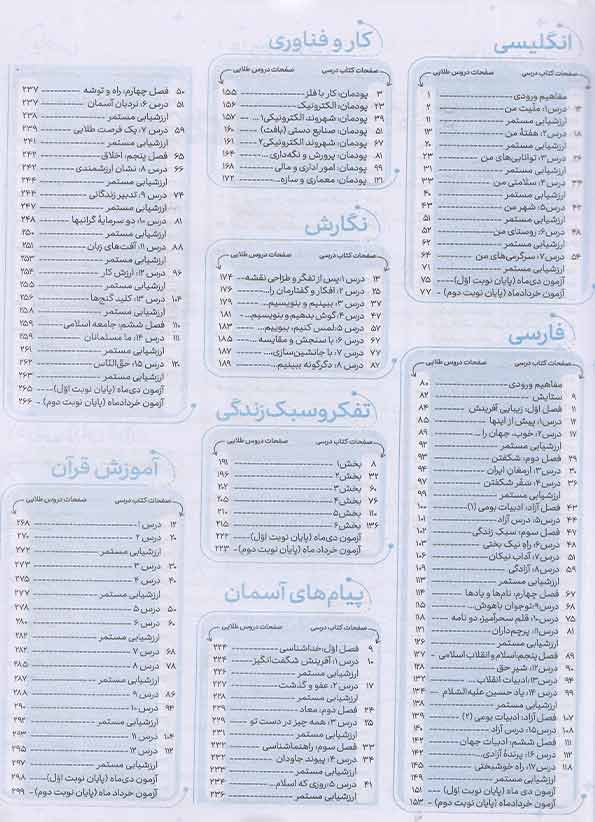 انگلیسی
صفحات کتاب درسی صفحات دروس طلایی
مفاهیم ورودی ۱
۱۴ درس۱: ملّیت من ۲
ارزشیابی مستمر ۱۱
۱۸ درس۲: هفتۀ من ۱۳
ارزشیابی مستمر ۲۰
۲۶ درس۳: توانایی‌های من ۲۳
ارزشیابی مستمر ۳۱
۳۴ درس۴: سلامتی من ۳۳
ارزشیابی مستمر ۴۰
۴۲ درس۵: شهر من ۴۳
ارزشیابی مستمر ۵۱
۴۸ درس۶: روستای من ۵۲
ارزشیابی مستمر ۶۲
۵۴ درس۷: سرگرمی‌های من ۶۴
ارزشیابی مستمر ۷۱
آزمون دی‌ماه (پایان نوبت اوّل) ۷۵
آزمون خردادماه (پایان نوبت دوم) ۷۷
فارسی
صفحات کتاب درسی صفحات دروس طلایی
مفاهیم ورودی ۸۰
۹ ستایش ۸۲
۱۱ فصل اوّل: زیبایی آفرینش ۸۴
۱۲ درس۱: پیش از اینها ۸۵
۱۷ درس۲: خوب، جهان را ... ۸۹
ارزشیابی مستمر ۹۲
۲۹ فصل دوم: شکفتن ۹۳
۳۰ درس۳: ارمغان ایران ۹۴
۳۶ درس۴: سفر شکفتن ۹۷
ارزشیابی مستمر ۹۹
۴۳ فصل آزاد: ادبیات بومی (۱) ۱۰۰
۴۴ درس۵: درس آزاد ۱۰۱
۴۷ فصل سوم: سبک زندگی ۱۰۲
۴۸ درس۶: راه نیک بختی ۱۰۳
۵۱ درس۷: آداب نیکان ۱۰۶
۵۹ درس۸: آزادگی ۱۰۹
ارزشیابی مستمر ۱۱۳
۶۷ فصل چهارم: نام‌ها و یادها ۱۱۴
۶۸ درس۹: نوجوان باهوش... ۱۱۵
۷۵ درس۱۰: قلم سحرآمیز، دو نامه ۱۱۸
۸۱ درس۱۱: پرچم‌داران ۱۲۱
ارزشیابی مستمر
۸۹ فصل پنجم:اسلام و انقلاب اسلامی ۱۲۷
۹۰ درس۱۲: شیر حق ۱۲۸
۹۴ درس۱۳: ادبیات انقلاب... ۱۳۲
۹۹ درس۱۴: یاد حسین علیه‌السّلام ۱۳۴
ارزشیابی مستمر ۱۳۸
۱۰۷ فصل آزاد: ادبیات بومی (۲) ۱۳۹
۱۰۸ درس۱۵: درس آزاد ۱۴۰
۱۱۱ فصل ششم: ادبیات جهان ۱۴۲
۱۱۲ درس۱۶: پرندۀ آزادی ۱۴۳
۱۱۸ درس۱۷: راه خوشبختی ۱۴۵
ارزشیابی مستمر ۱۴۹
آزمون دی‌ماه (پایان نوبت اوّل) ۱۵۱
آزمون خردادماه (پایان نوبت دوم) ۱۵۳
کار و فناوری
صفحات کتاب درسی صفحات دروس طلایی
۳ پودمان: کار با فلز ۱۵۵
۲۳ پودمان: الکترونیک ۱۵۶
۳۹ پودمان: شهروند الکترونیکی۱ ... ۱۵۷
۵۱ پودمان: صنایع دستی (بافت) ۱۶۰
۶۷ پودمان: شهروند الکترونیکی۲ ۱۶۱
۸۱ پودمان: پرورش و نگه‌داری... ۱۶۴
۹۹ پودمان: امور اداری و مالی ۱۶۸
۱۲۱ پودمان: معماری و سازه... ۱۷۲
نگارش
صفحات کتاب درسی صفحات دروس طلایی
۱۳ درس ۱:پس از تفکّر و طرّاحی نقشه... ۱۷۴
۲۵ درس ۲: افکار و گفتارمان را... ۱۷۶
۳۷ درس ۳: ببینیم و بنویسیم... ۱۷۹
۴۷ درس ۴: گوش بدهیم و بنویسیم... ۱۸۱
۵۷ درس ۵: لمس کنیم، ببوییم... ۱۸۳
۶۷ درس ۶: با سنجش و مقایسه ۱۸۵
۷۷ درس ۷: با جانشین‌سازی... ۱۸۷
۸۷ درس ۸: دگرگونه ببینیم ۱۸۹
تفکر و سبک زندگی
صفحات کتاب درسی صفحات دروس طلایی
۸ بخش۱ ۱۹۱
۳۲ بخش۲ ۱۹۶
۶۰ بخش۳ ۲۰۲
۷۶ بخش۴ ۲۰۵
۱۱۰ بخش۵ ۲۱۰
۱۳۶ بخش۶ ۲۱۵
آزمون دی‌ماه (پایان نوبت اوّل) ۲۲۲
آزمون خرداد ماه (پایان نوبت دوم) ۲۲۳
پیام‌های آسمان
صفحات کتاب درسی صفحات دروس طلایی
۹ فصل اوّل: خداشناسی ۲۲۴
۱۰ درس ۱: آفرینش شگفت‌انگیز ۲۲۴
ارزشیابی مستمر ۲۲۶
۱۷ درس ۲: عفو و گذشت ۲۲۷
ارزشیابی مستمر ۲۲۸
۲۴ فصل دوم: معاد ۲۲۹
۲۵ درس ۳: همه چیز در دست تو ۲۲۹
ارزشیابی مستمر
۳۳ فصل سوم: راهنماشناسی ۲۳۲
۳۴ درس ۴: پیوند جاودان ۲۳۲
ارزشیابی مستمر
۴۱ درس ۵:روزی که اسلام... ۲۳۴
ارزشیابی مستمر ۲۳۶
۵۰ فصل چهارم: راه و توشه ۲۳۷
۵۱ درس ۶: نردبان آسمان ۲۳۷
ارزشیابی مستمر ۲۳۸
۵۹ درس ۷: یک فرصت طلایی ۲۳۹
ارزشیابی مستمر ۲۴۱
۶۵ فصل پنجم: اخلاق ۲۴۲
۶۶ درس ۸: نشان ارزشمندی ۲۴۲
ارزشیابی مستمر
۷۴ درس ۹: تدبیر زندگانی ۲۴۴
ارزشیابی مستمر
۸۱ درس ۱۰: دو سرمایۀ گرانبها ۲۴۸
ارزشیابی مستمر ۲۵۰
۸۸ درس ۱۱: آفت‌های زبان ۲۵۱
ارزشیابی مستمر ۲۵۳
۹۶ درس ۱۲: ارزش کار ۲۵۴
ارزشیابی مستمر ۲۵۵
۱۰۴ درس ۱۳: کلید گنج‌ها ۲۵۶
ارزشیابی مستمر ۲۵۸
۱۱۰ فصل ششم: جامعه اسلامی ۲۵۹
۱۱۱ درس ۱۴: ما مسلمانان ۲۵۹
ارزشیابی مستمر ۲۶۱
۱۲۰ درس ۱۵: حق‌النّاس ۲۶۲
ارزشیابی مستمر ۲۶۳
آزمون دی‌ماه (پایان نوبت اوّل) ۲۶۵
آزمون خردادماه (پایان نوبت دوم) ۲۶۶
آموزش قرآن
صفحات کتاب درسی صفحات دروس طلایی
۱۲ درس ۱ ۲۶۸
۲۰ درس ۲ ۲۷۰
ارزشیابی مستمر ۲۷۲
۳۰ درس ۳ ۲۷۳
۴۰ درس ۴ ۲۷۵
ارزشیابی مستمر ۲۷۷
۵۰ درس ۵ ۲۷۸
۶۰ درس ۶ ۲۸۰
ارزشیابی مستمر ۲۸۲
۶۸ درس ۷ ۲۸۲
۷۸ درس ۸ ۲۸۵
ارزشیابی مستمر ۲۸۷
۸۶ درس ۹ ۲۸۸
۹۴ درس ۱۰ ۲۹۰
ارزشیابی مستمر ۲۹۲
۱۰۴ درس ۱۱ ۲۹۳
۱۱۲ درس ۱۲ ۲۹۵
ارزشیابی مستمر ۲۹۷
آزمون دی‌ماه (پایان نوبت اوّل) ۲۹۸
آزمون خرداد ماه (پایان نوبت دوم) ۲۹۹